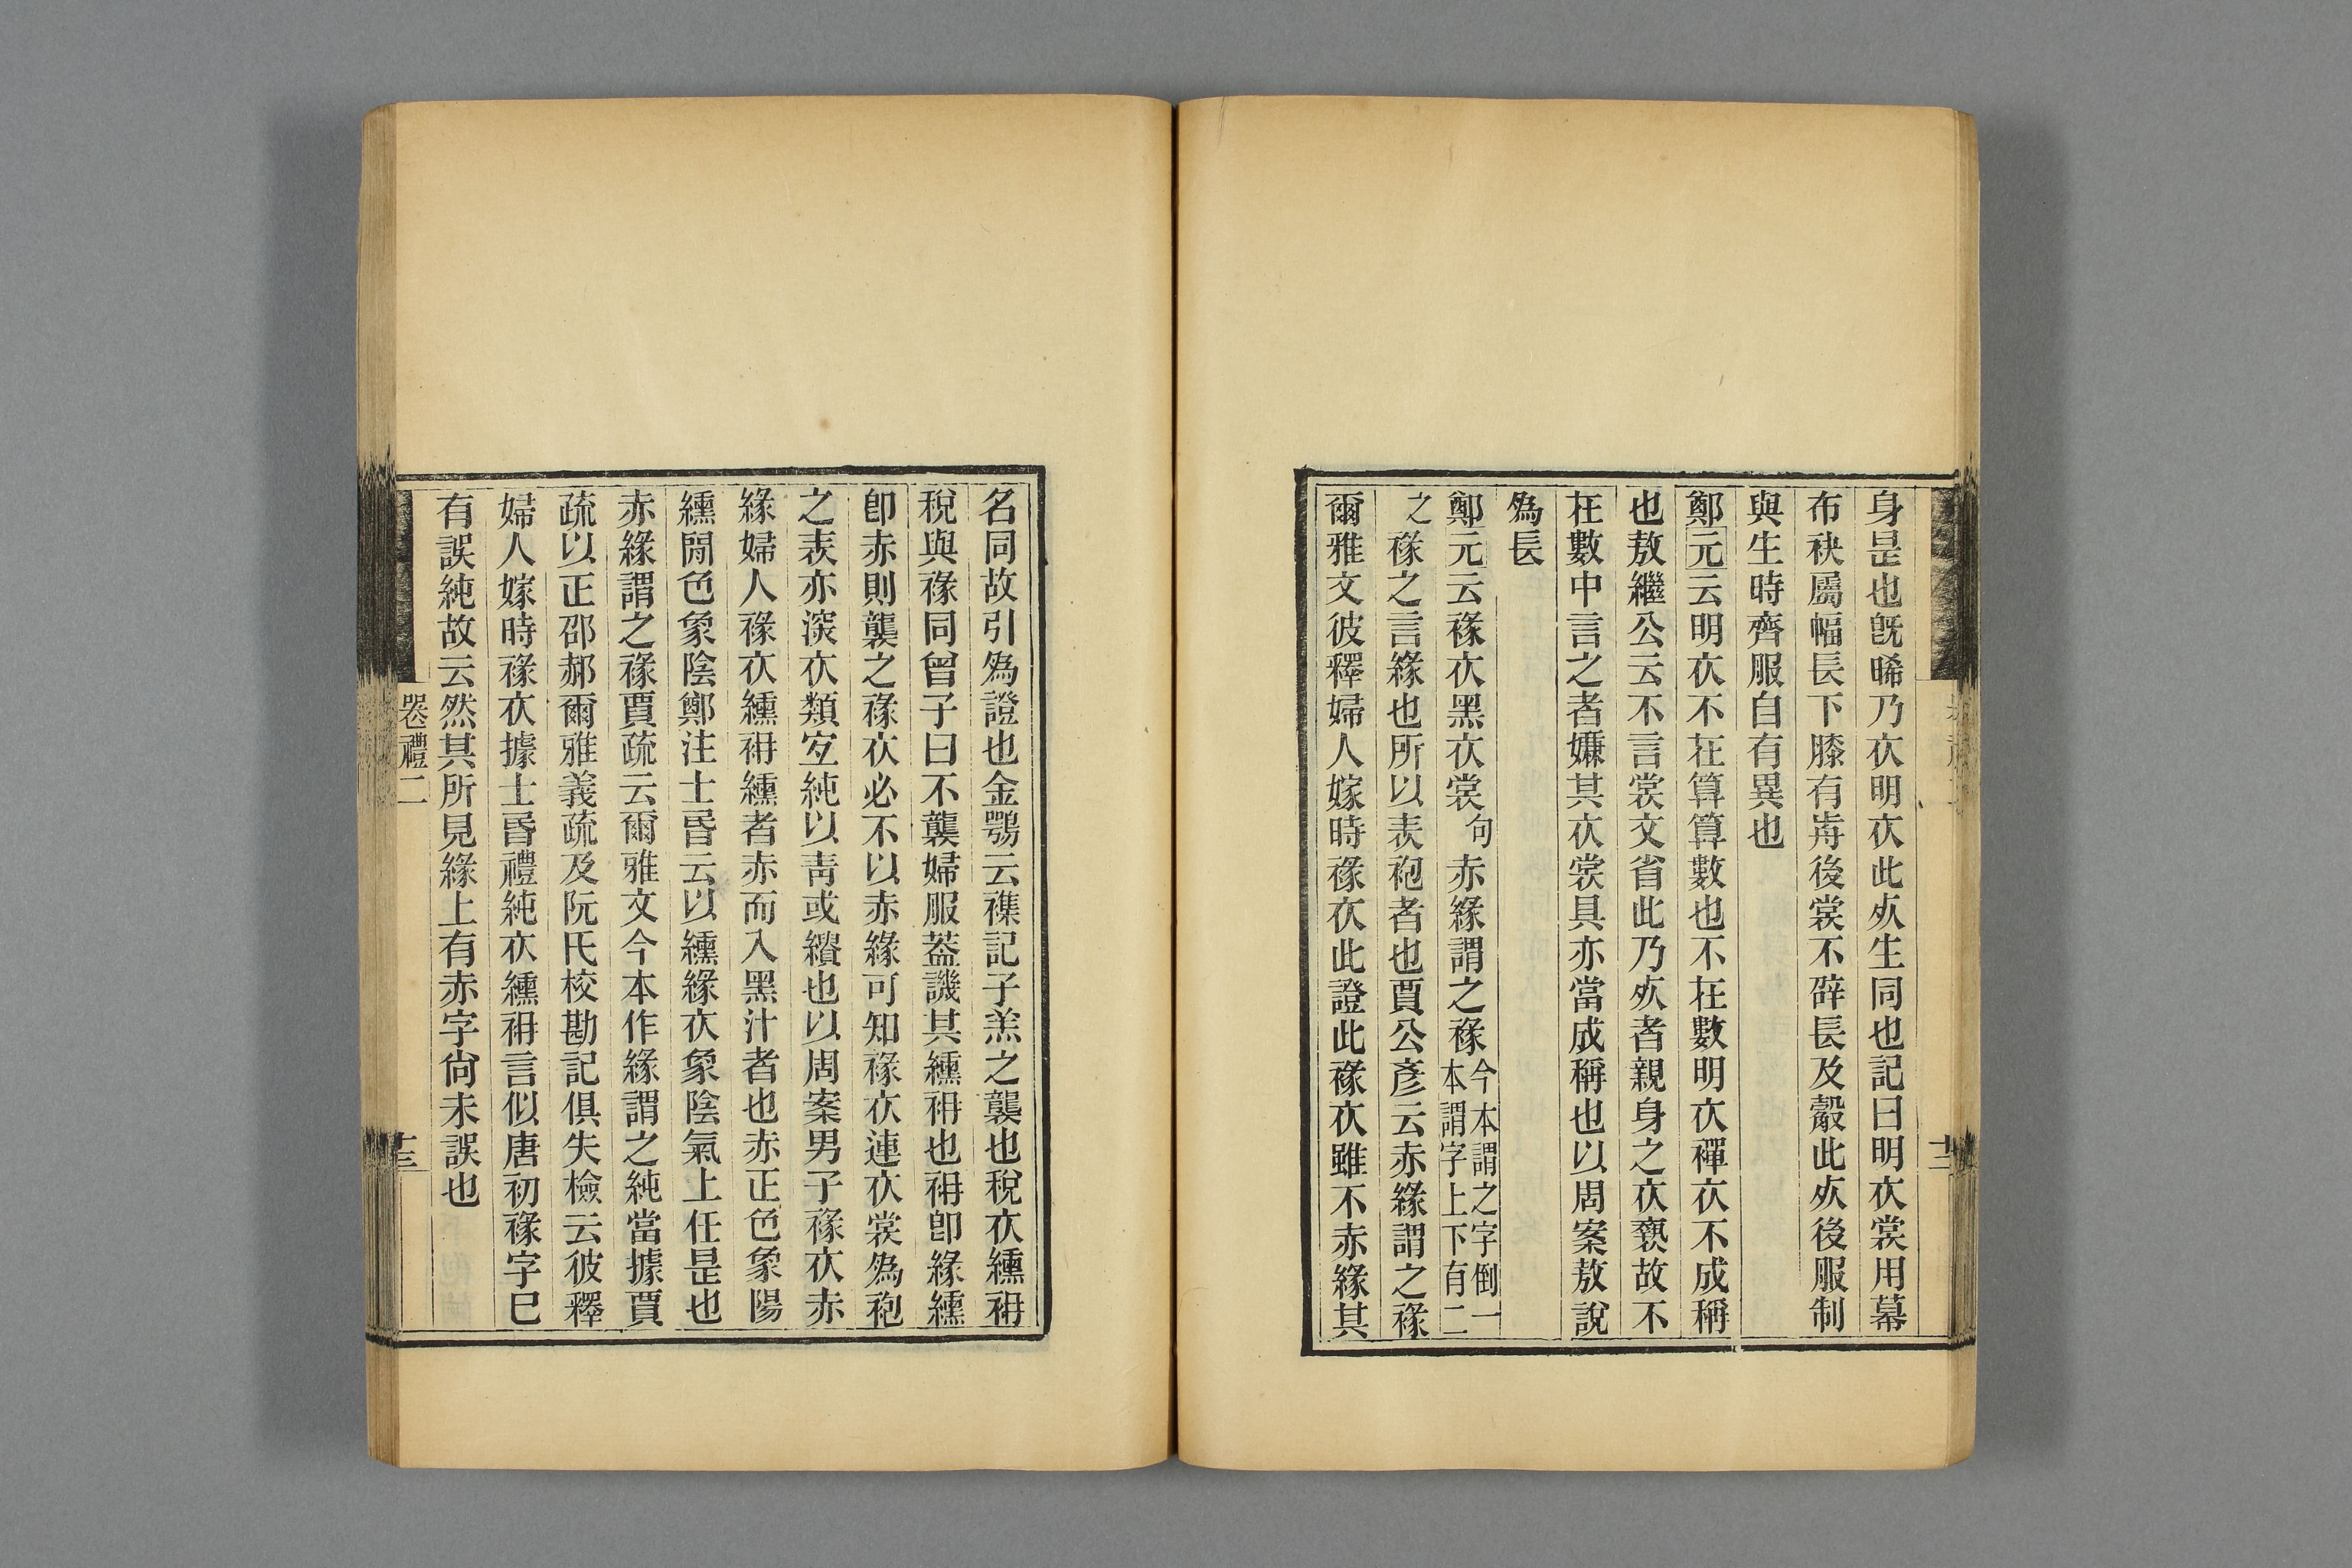 身是也旣晞乃衣明衣此㱙生同也記曰明衣裳用幕
布袂屬幅長下膝有歬後裳不辟長及觳此㱙後服制
與生時齊服自有異也
鄭元云明衣不在算算數也不在數明衣禪衣不成稱
也敖繼公云不言裳文省此乃㱙者親身之衣褻故不
在數中言之者嫌其衣裳具亦當成稱也以周案敖說
爲長
鄭元云褖衣黑衣裳句赤緣謂之褖今本謂之字倒一本謂字上下有二
之褖之言緣也所以表袍者也賈公彥云赤緣謂之褖
爾雅文彼釋婦人嫁時褖衣此證此褖衣雖不赤緣其
名同故引爲證也金鶚云襍記子羔之襲也稅衣纁袡
稅與褖同曾子曰不襲婦服葢譏其纁袡也袡卽緣纁
卽赤則襲之褖衣必不以赤緣可知褖衣連衣裳爲袍
之表亦深衣類宐純以靑或繢也以周案男子褖衣赤
緣婦人褖衣纁袡纁者赤而入黑汁者也赤正色象陽
纁閒色象陰鄭注士昏云以纁緣衣象陰氣上任是也
赤緣謂之褖賈疏云爾雅文今本作緣謂之純當據賈
疏以正邵郝爾雅義疏及阮氏校勘記俱失檢云彼釋
婦人嫁時褖衣據士昏禮純衣纁袡言似唐初褖字已
有誤純故云然其所見緣上有赤字尙未誤也
喪禮二
十三